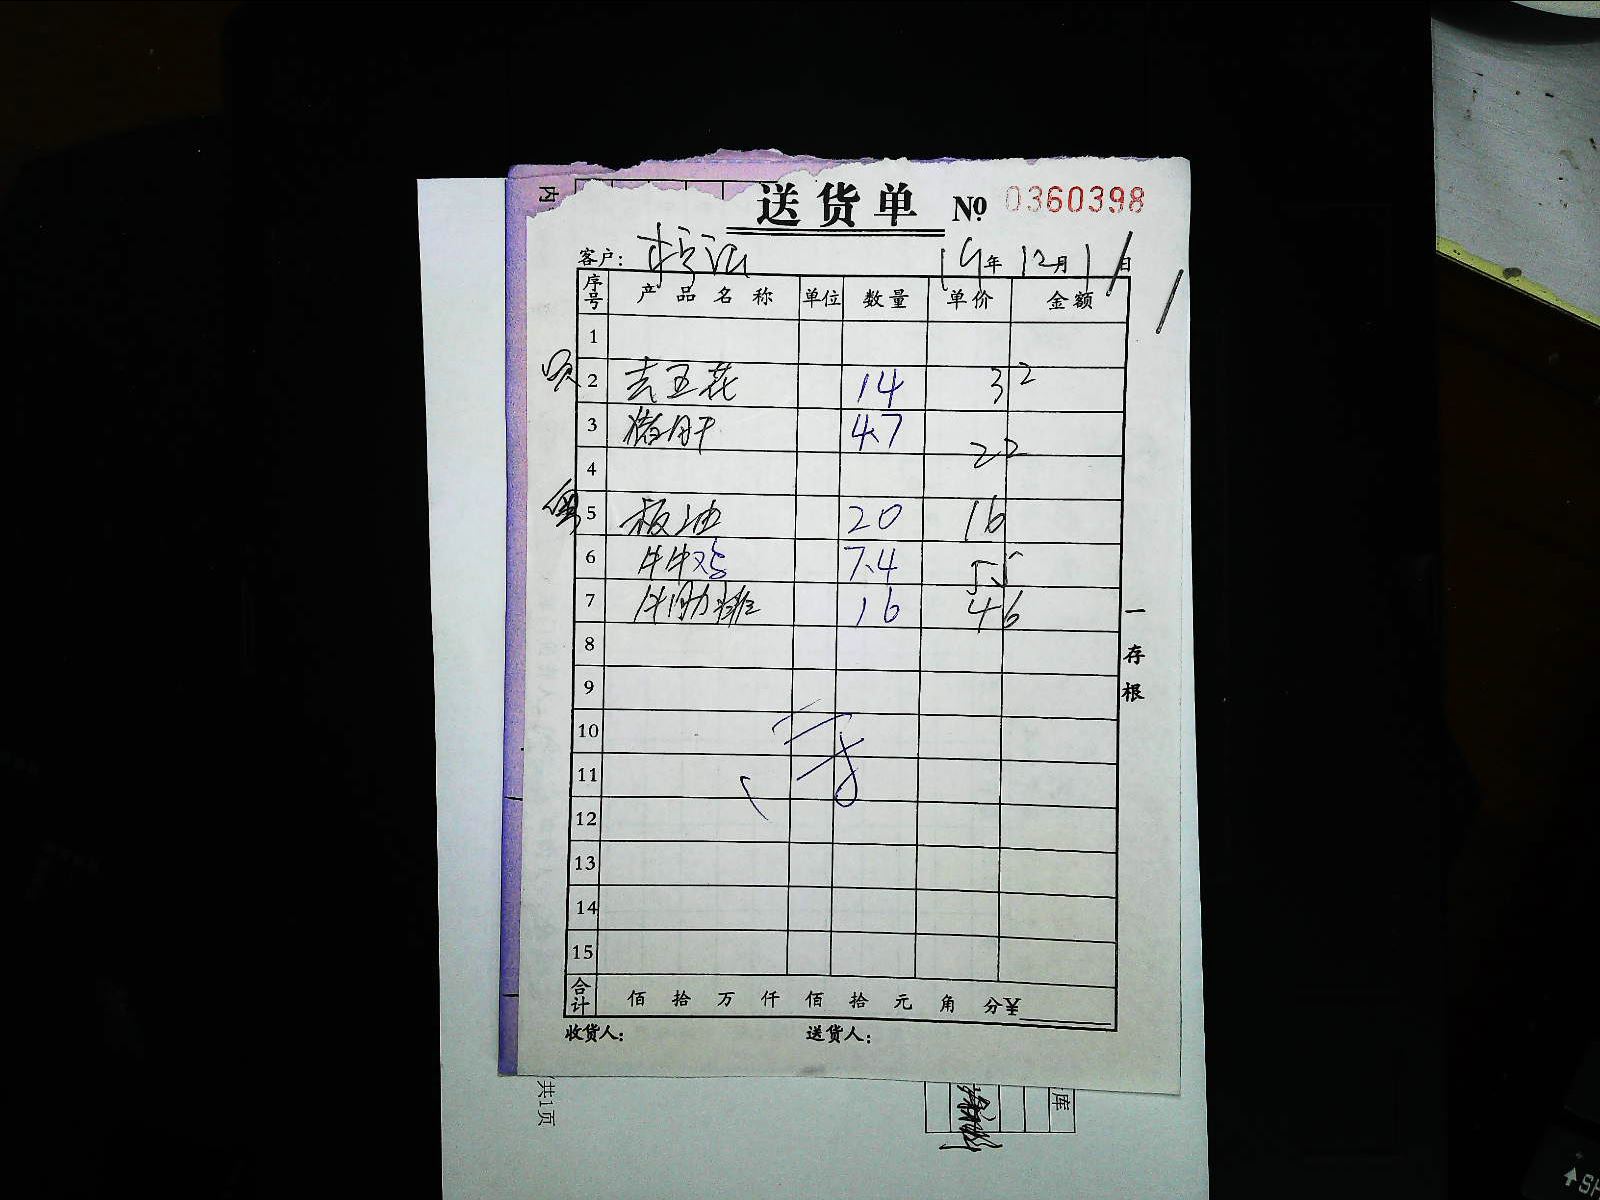 送货单 № 0360398
客户: 19年12月11日
序号 产品名称 单位 数量 单价 金额
1
2 去五花 14 32
3 猪肝 4.7 22
4
5 板油 20 16
6 7.4 55
7 牛肋排 16 46
8
9
10
11
12
13
14
15
合计 佰 拾 万 仟 佰 拾 元 角 分 ¥
收货人: 送货人:
一存根
内
共1页
库